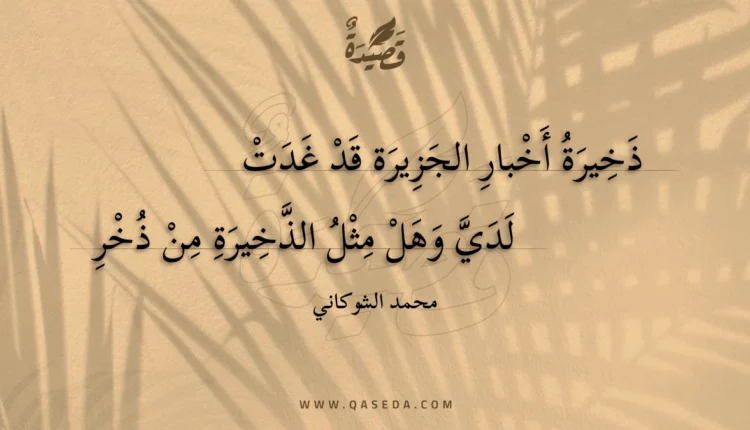 قَصِيْدَةٌ
ذَخِيرَةُ أَخْبارِ الجَزِيرَة قَدْ غَدَتْ
لَدَيَّ وَهَلْ مِثْلُ الذَّخِيرَةِ مِنْ ذُخْرِ
محمد الشوكاني
WWW.QASEDA.COM